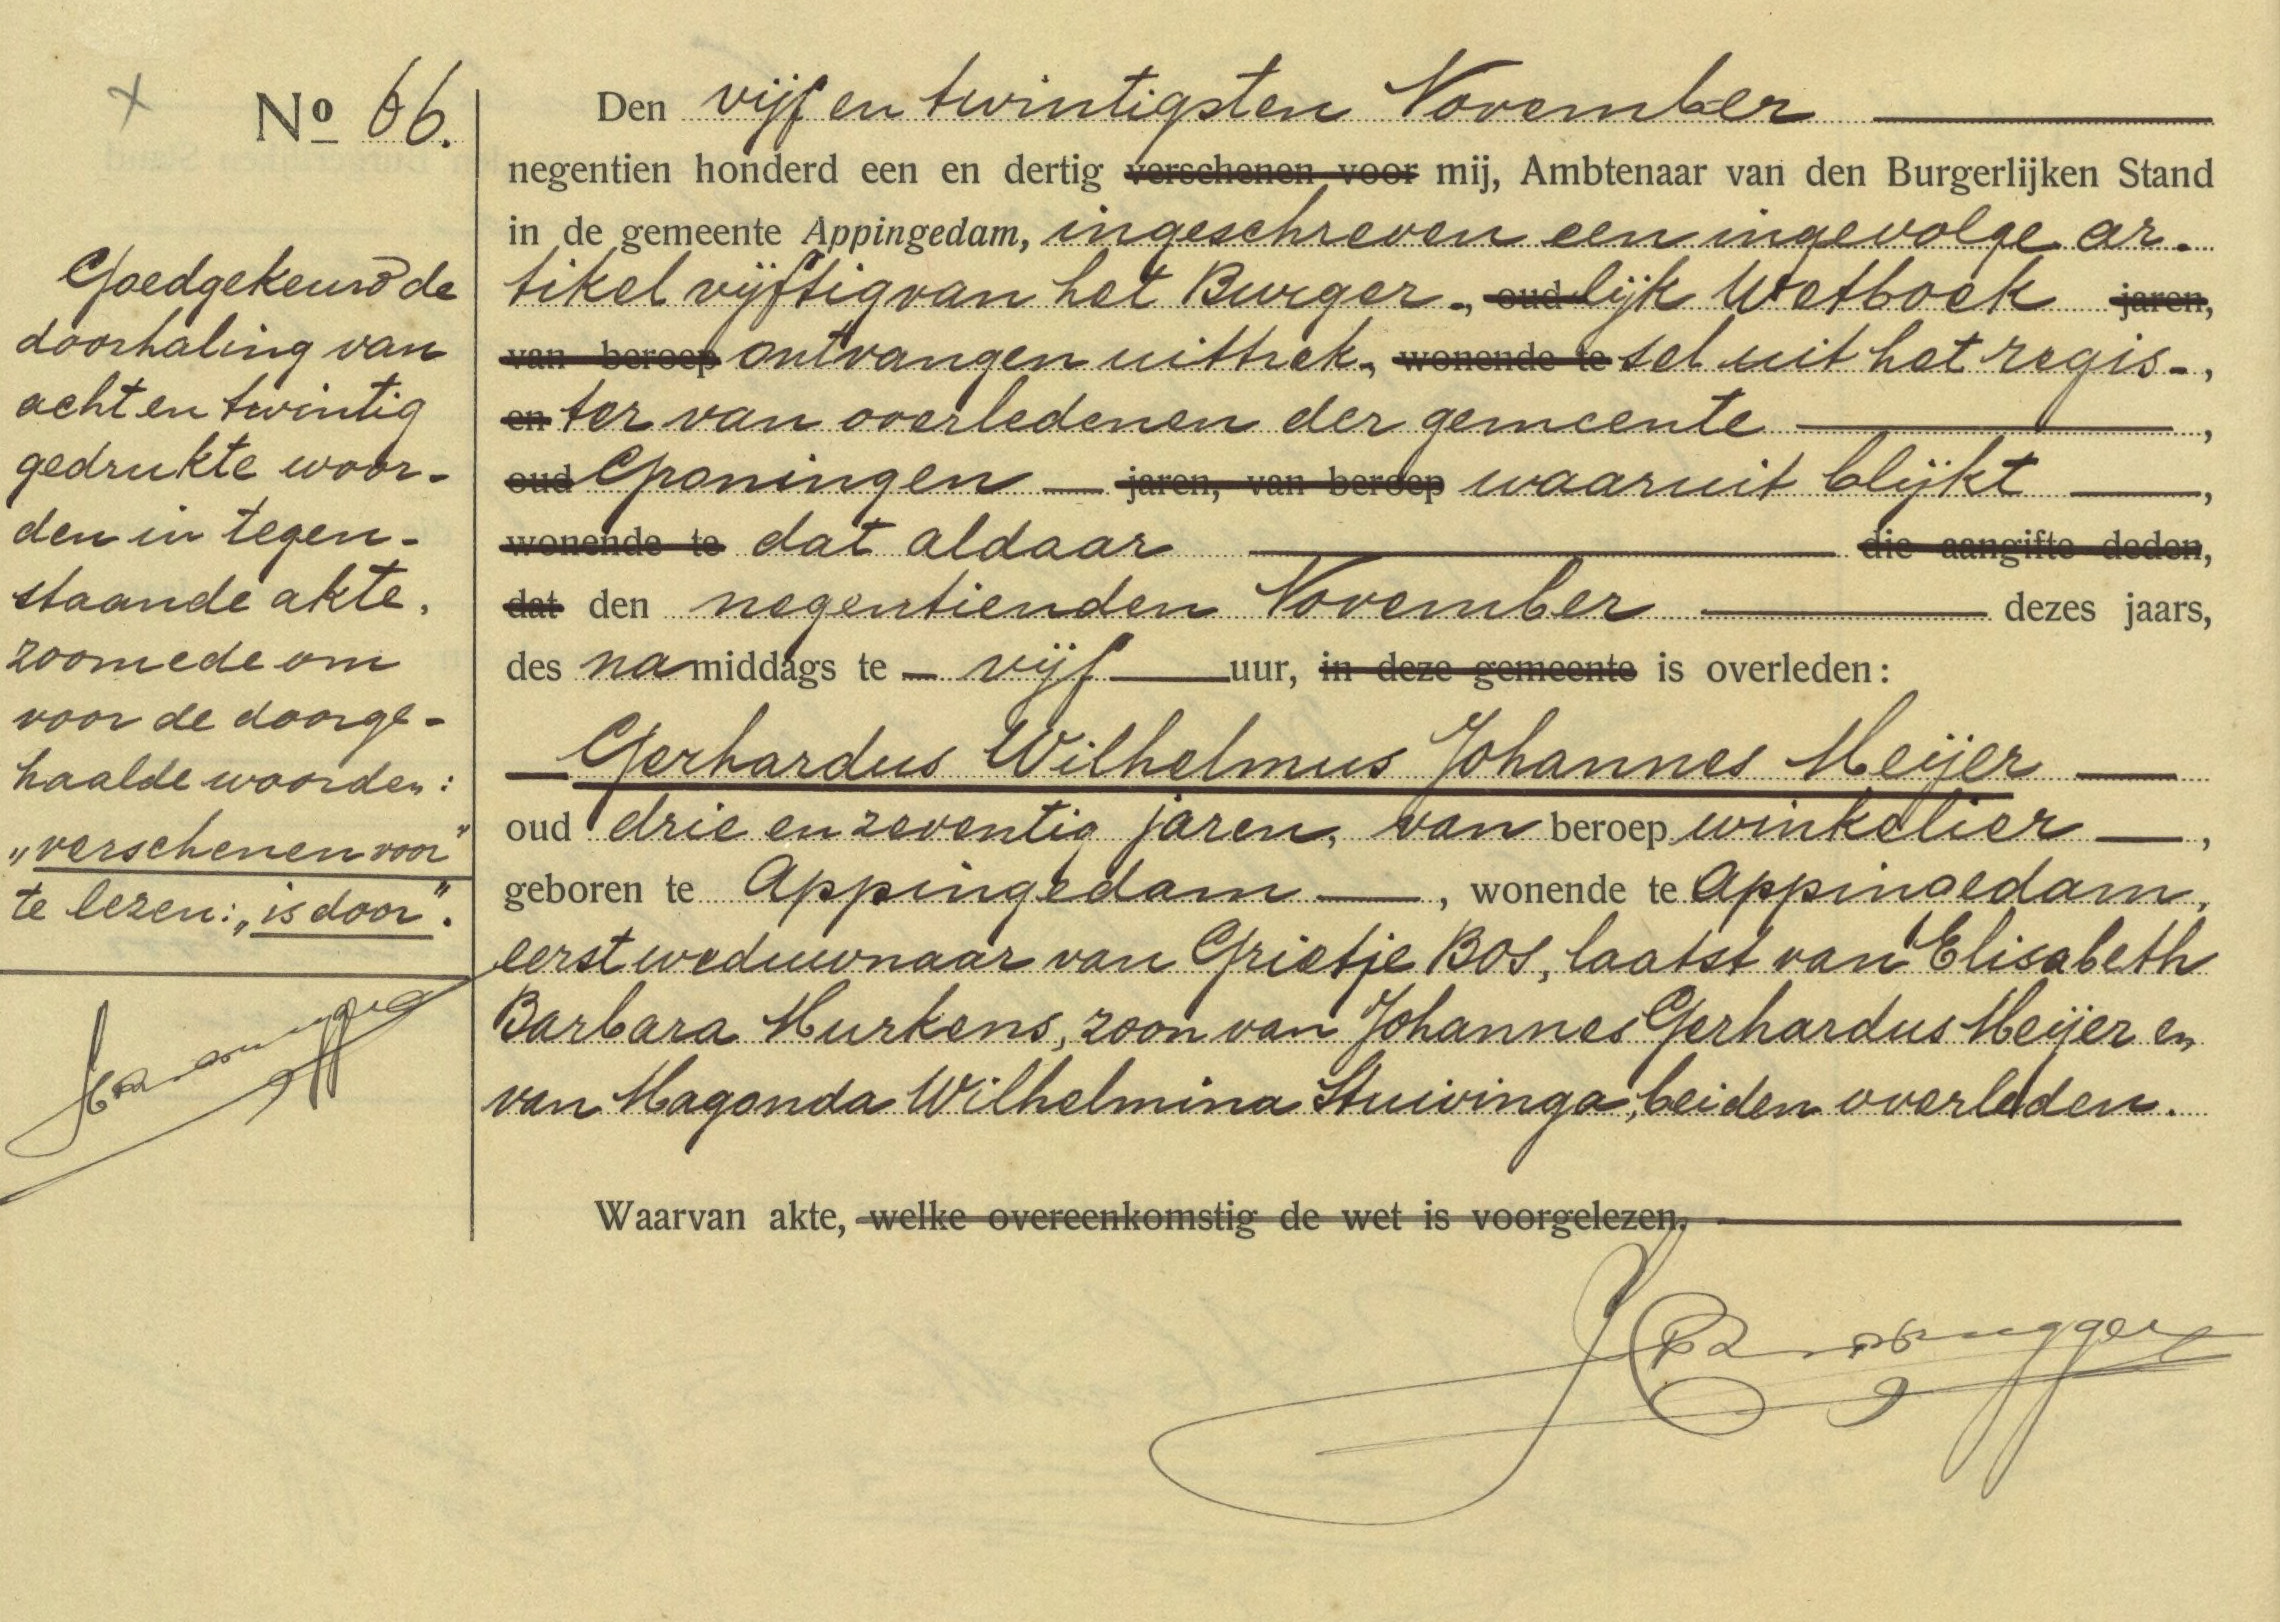 Nº 66.
Den vijf en twintigsten November
negentien honderd een en dertig verschenen voor mij, Ambtenaar van den Burgerlijken Stand
in de gemeente Appingedam, ingeschreven een ingevolge ar-
tikel vijftig van het Burger-, oud lijk Wetboek jaren,
van beroep ontvangen uittrek-, wonende te sel uit het regis-,
en ter van overledenen der gemeente ,
oud Groningen jaren, van beroep waaruit blijkt ,
wonende te dat aldaar die aangifte deden,
dat den negentienden November dezes jaars,
des namiddags te vijf uur, in deze gemeente is overleden:
Gerhardus Wilhelmus Johannes Meijer
oud drie en zeventig jaren, van beroep winkelier ,
geboren te Appingedam , wonende te Appingedam,
eerst weduwnaar van Grietje Bos, laatst van Elisabeth
Barbara Murkens, zoon van Johannes Gerhardus Meijer en
van Magonda Wilhelmina Stuivinga, beiden overleden.
Waarvan akte, welke overeenkomstig de wet is voorgelezen,
Goedgekeurd de
doorhaling van
acht en twintig
gedrukte woor-
den in tegen-
staande akte,
zoomede om
voor de doorge-
haalde woorden:
„verschenen voor"
te lezen: „is door".